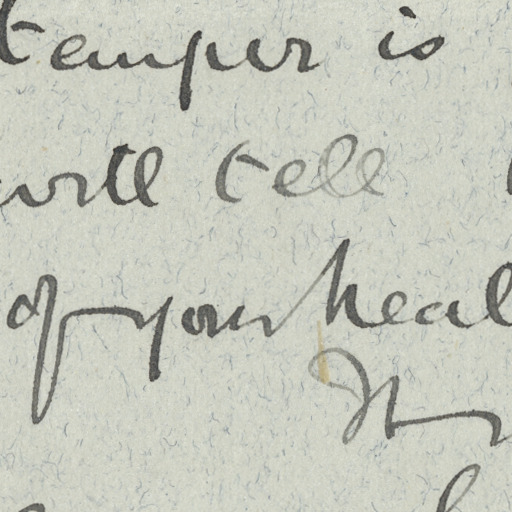 temper is
will tell
of your heal